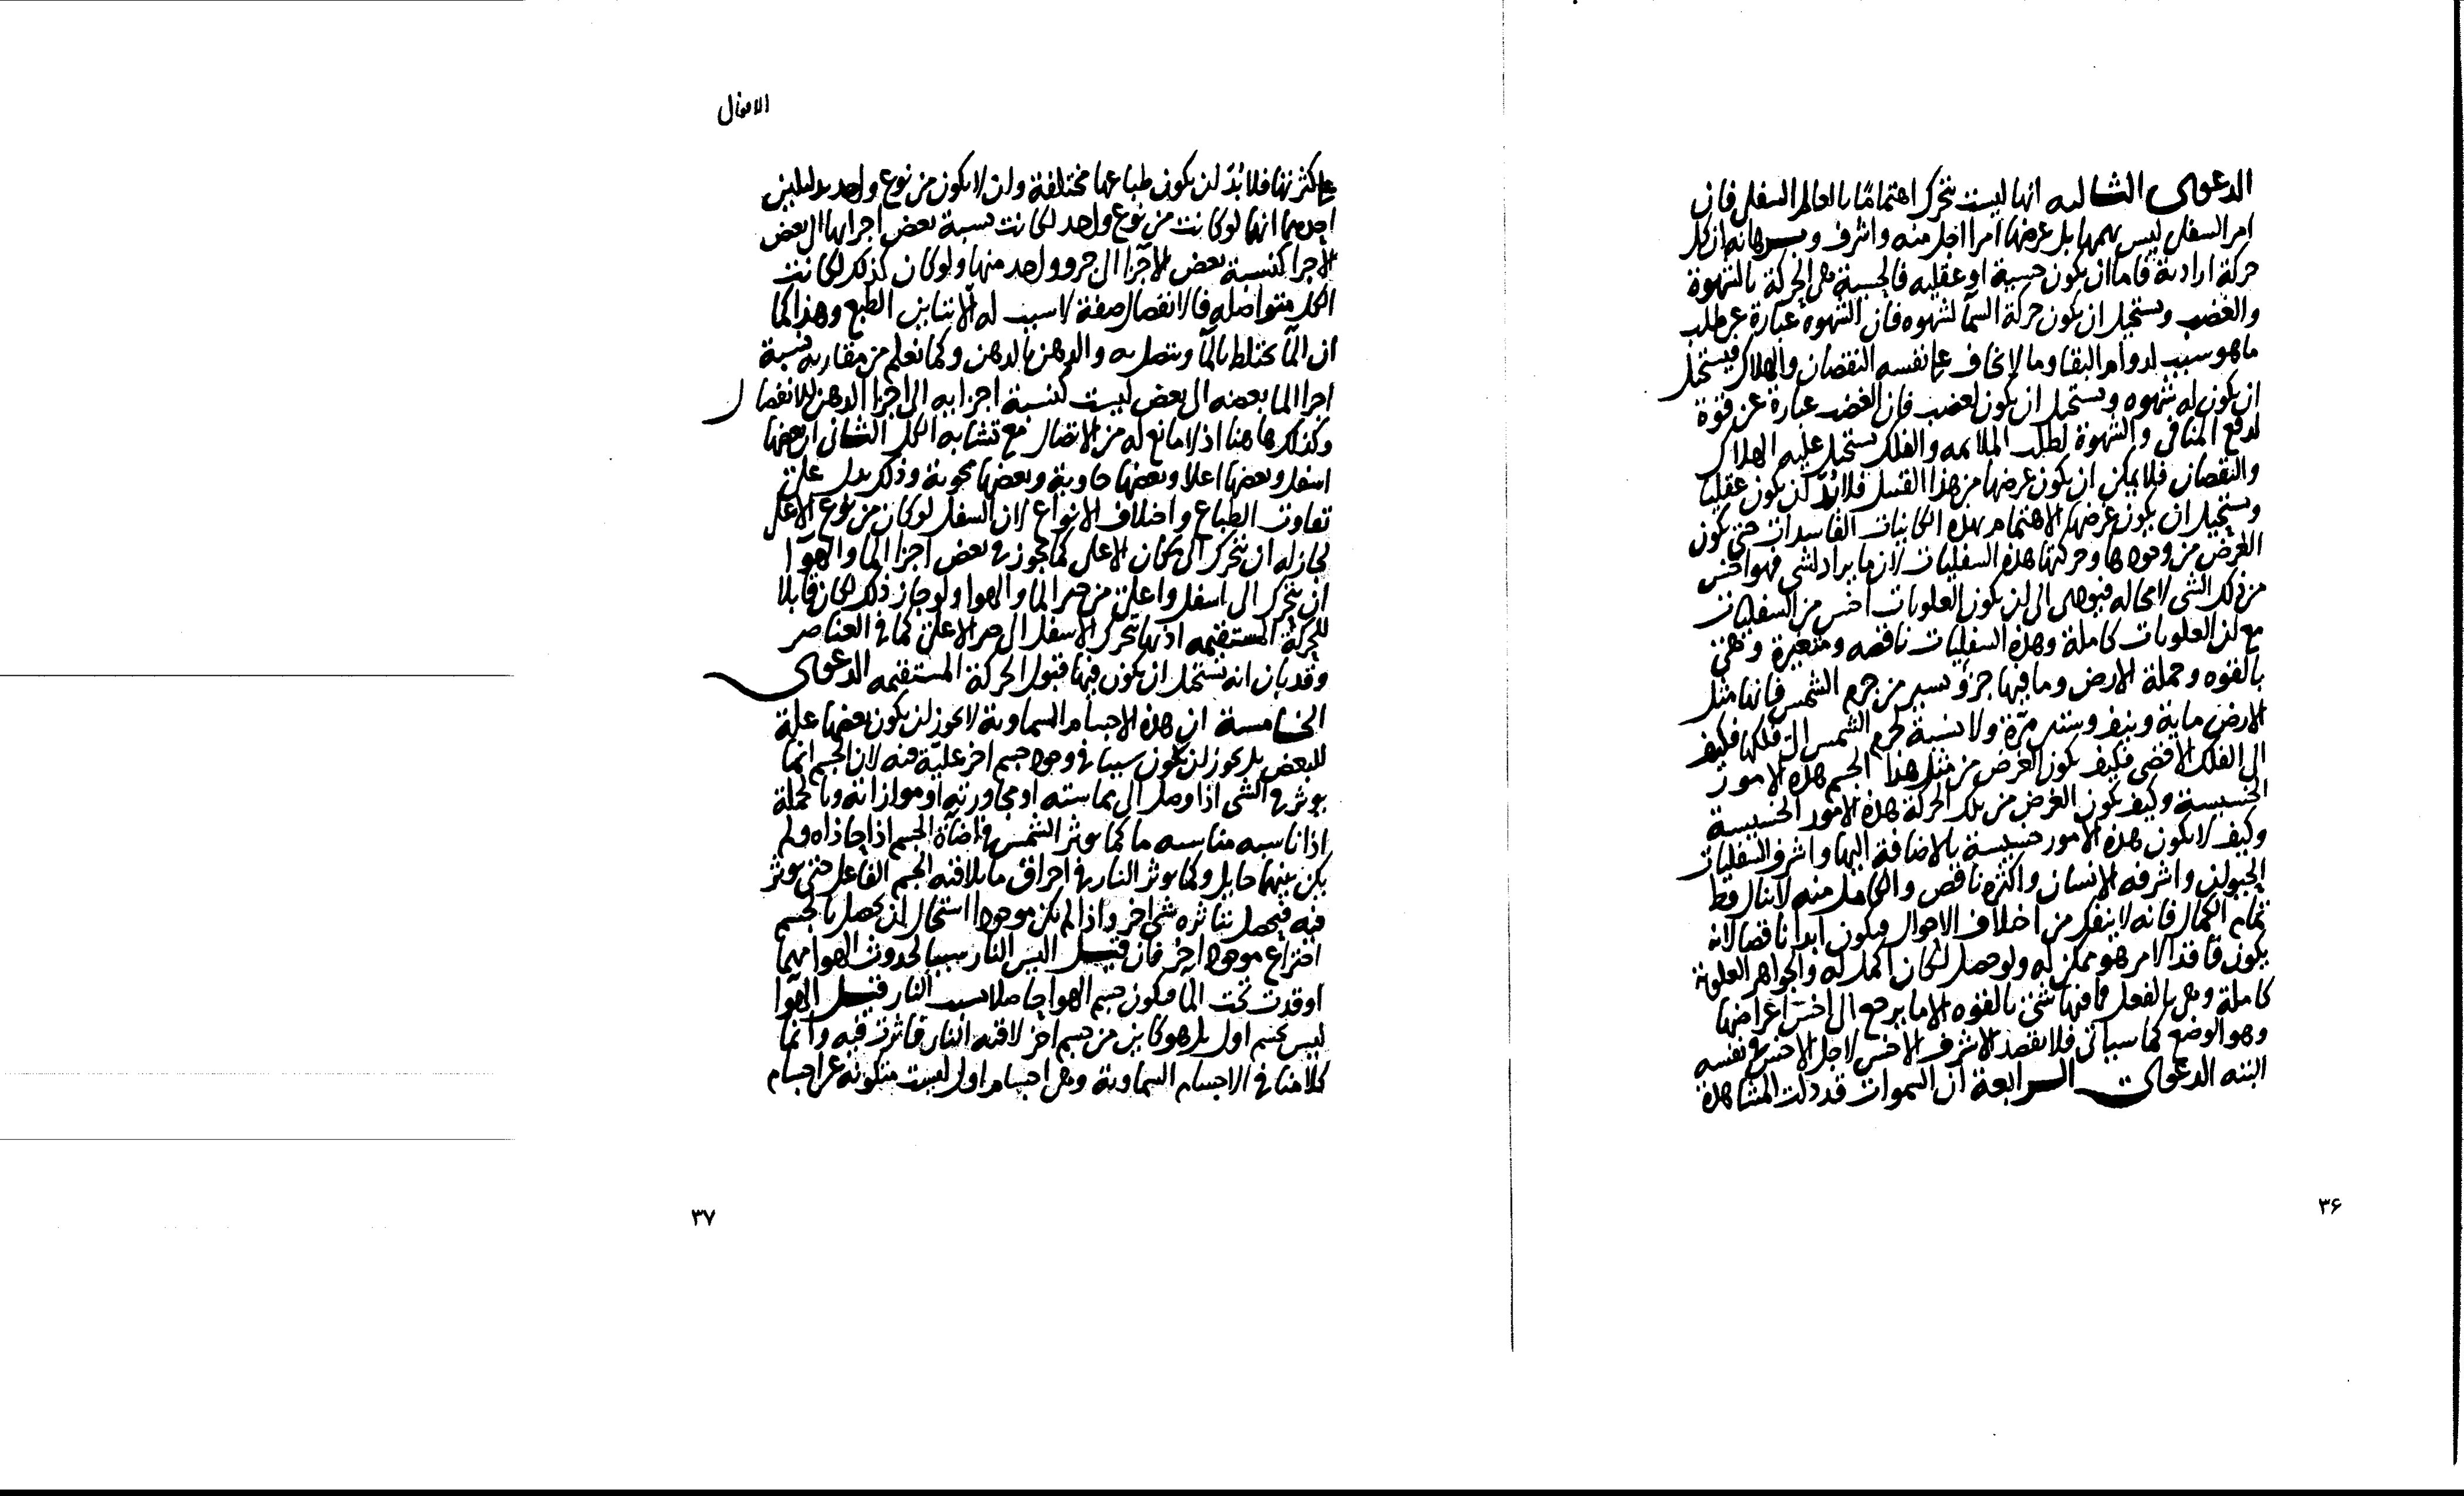 الدعوى الثالثه انها ليست تتحرك اهتمامًا بالعالم السفلي فان
امر السفلي ليس يهمها بل غرضها امرا اجل منه واشرف وبرهانه ان كل
حركة ارادية فاما ان يكون حسية او عقليه فالحسية هي الحركة بالشهوة
والغضب ويستحيل ان يكون حركة السمآ لشهوه فان الشهوة عبارة عن طلب
ما هو سبب لدوام البقا وما لا يخاف على نفسه النقصان والهلاك فيستحيل
ان يكون له شهوه ويستحيل ان يكون لغضب فان الغضب عبارة عن قوة
لدفع المنافي والشهوة لطلب الملايمه والفلك يستحيل عليه الهلاك
والنقصان فلا يمكن ان يكون غرضها من هذا القبيل فلا بدّ ان يكون عقليا
ويستحيل ان يكون غرضها الاهتمام بهذه الكاينات الفاسدات حتى يكون
الغرض من وجودها وحركتها هذه السفليات لان ما يراد لشي فهو اخس
من ذلك الشي لا محاله فيودى الى ان يكون العلويات اخس من السفليات
مع ان العلويات كاملة وهذه السفليات ناقصه ومتغيرة وهي
بالقوه وجملة الارض وما فيها جزؤ يسير من جرم الشمس فانها مثل
الارض ماية ونيف وستين مرّة ولا نسبة لجرم الشمس الى فلكها فكيف
الى الفلك الاقصى فكيف يكون الغرض من مثل هذا الجسم هذه الامور
الخسيسة وكيف يكون الغرض من تلك الحركة هذه الامور الخسيسة
وكيف لا يكون هذه الامور خسيسة بالاضافة اليها واشرف السفليات
الحيوان واشرفه الانسان واكثره ناقص والكامل منه لا ينال قط
تمام الكمال فانه لا ينفك من اختلاف الاحوال فيكون ابدا ناقصا لانه
يكون فاقدا لامر هو ممكن له ولو حصل لكان اكمل له والجواهر العلوية
كاملة وهي بالفعل فما فيها شى بالقوه الا ما يرجع الى اخس اعراضها
وهو الوضع كما سياتى فلا يقصد الاشرف الاخس لاجل الاخس في نفسه
البته الدعوى الرابعة ان السموات قد دلت المشاهدة
٣۶
الانفال
على كثرتها فلا بدّ ان يكون طباعها مختلفة وان لا يكون من نوع واحد بدليلين
احدهما انها لو كانت من نوع واحد لكانت نسبة بعض اجزايها الى بعض
الاجزا كنسبة بعض الاجزا الى جزو واحد منها ولو كان كذلك لكانت
الكل متواصله فالانفصال صفة لا سبب له الا تباين الطبع وهذا كما
ان المآ يختلط بالمآ ويتصل به والدهن بالدهن وكما نعلم من مقاربه نسبة
اجزا الما بعضه الى بعض ليست كنسبة اجزايه الى اجزا الدهن للانفصال
وكذلك ها هنا اذ لا مانع له من الاتصال مع تشابه الكل الثانى ان بعضها
اسفل وبعضها اعلا وبعضها حاوية وبعضها محوية وذلك يدل على
تفاوت الطباع واختلاف الانواع لان السفل لو كان من نوع الاعلى
لجاز له ان يتحرك الى مكان الاعلى كما يجوز في بعض اجزا الما والهوآ
ان يتحرك الى اسفل واعلى من حيز الما والهوا ولو جاز ذلك لكان قابلا
للحركة المستقيمه اذ بها يتحرك الاسفل الى حيز الاعلى كما في العناصر
وقد بان انه يستحيل ان يكون فيها قبول الحركة المستقيمه الدعوى
الخامسة ان هذه الاجسام السماوية لا يجوز ان يكون بعضها علة
للبعض بل يجوز ان يكون سببا في وجود جسم اخر عليّة فيه لان الجسم انما
يوثر في الشى اذا وصل الى مماسته او مجاورته او موازاته وبالجملة
اذا ناسبه مناسبه ما كما يوثر الشمس في اضآة الجسم اذا حاذاه ولم
يكن بينهما حايل وكما يوثر النار في احراق ما يلاقيه الجسم الفاعل حتى يوثر
فيه فيحصل بتاثره شى اخر واذا لم يكن موجودا استحال ان يحصل بالجسم
اختراع موجود اخر فان قيل اليس النار سببا لحدوث الهوا مهما
اوقدت تحت المآ فيكون جسم الهوا حاصلا بسبب النار قيل الهوآ
ليس بجسم اول بل هو كاين من جسم اخر لاقته النار فاثرت فيه وانما
كلامنا في الاجسام السماوية وهي اجسام اول ليست متكونة عن اجسام
٣٧